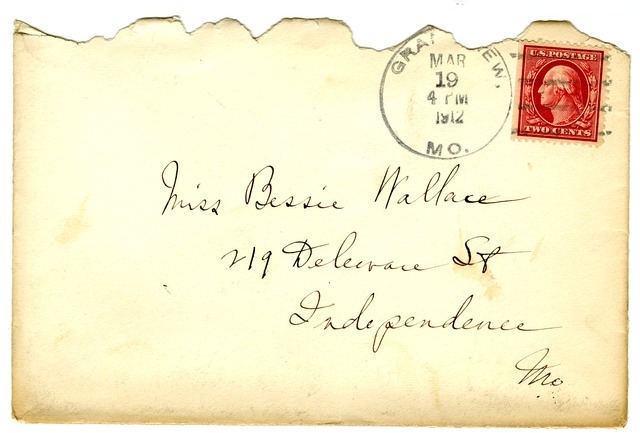 MAR
19
4 PM
1912
MO.
U.S. POSTAGE
TWO CENTS
Miss Bessie Wallace
219 Deleware St
Independence
Mo